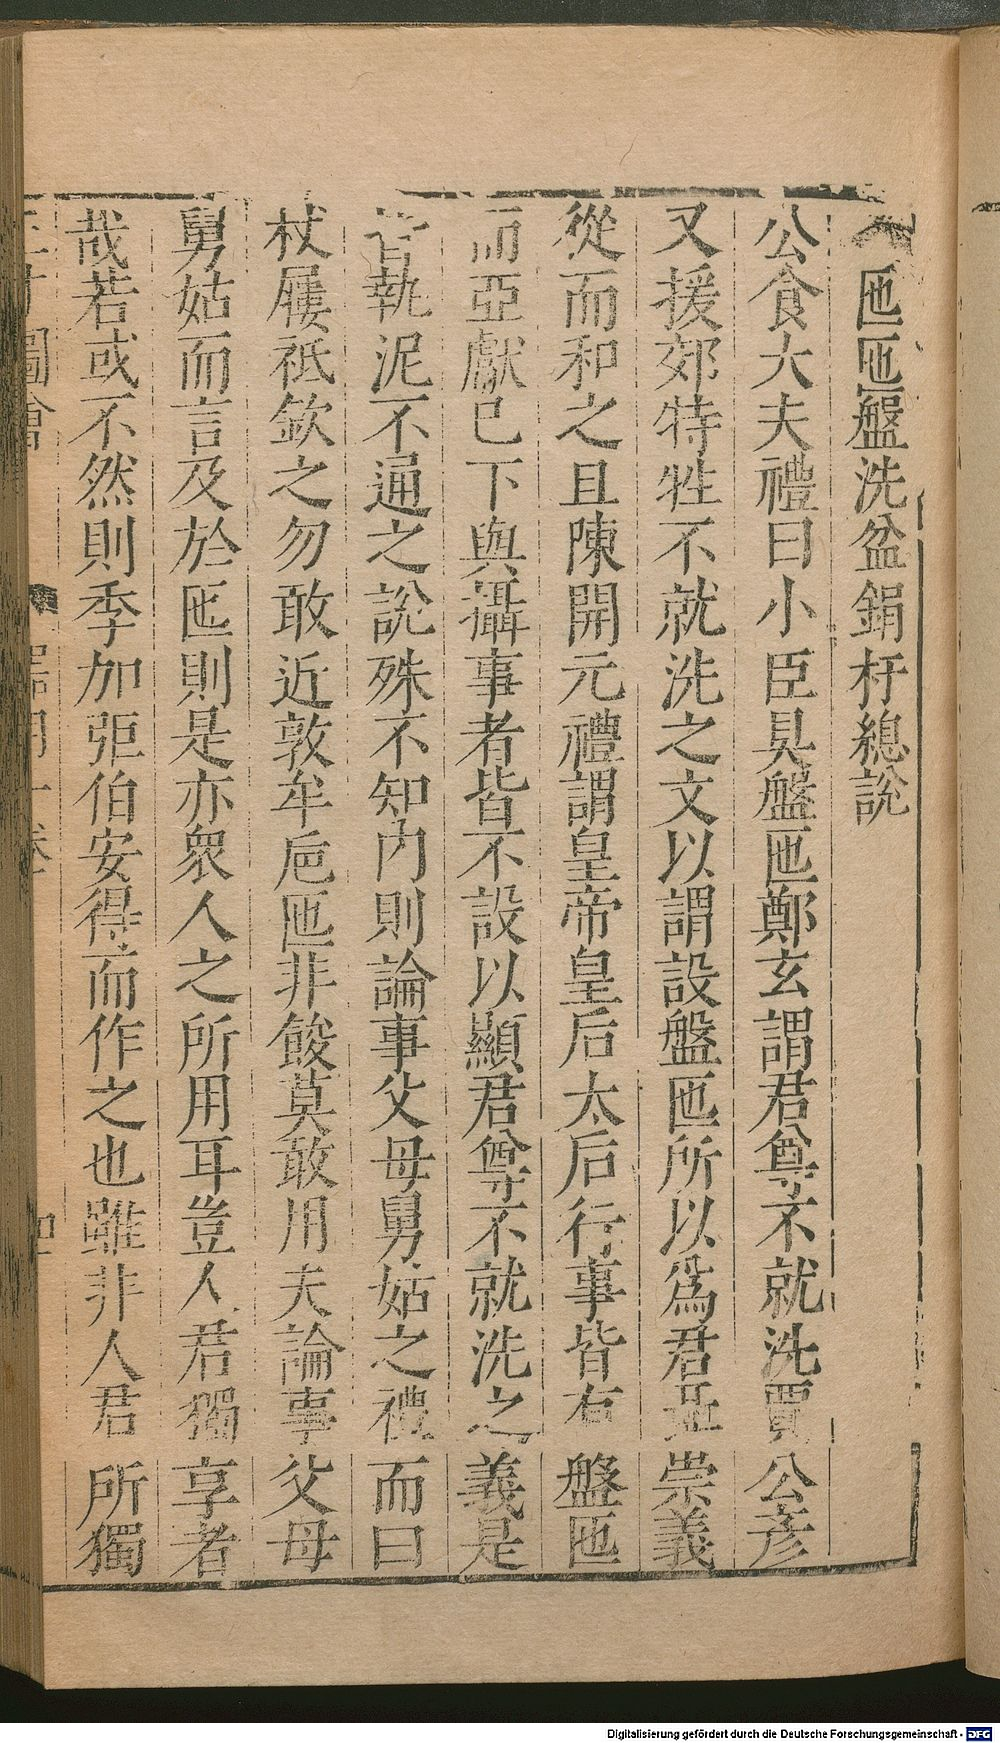 匜匜盤洗盆鋗杅總說
公食大夫禮曰小臣具盤匜鄭玄謂君尊不就洗賈公彥
又援郊特牲不就洗之文以謂設盤匜所以為君聶崇義
從而和之且陳開元禮謂皇帝皇后太后行事皆有盤匜
而亞獻已下與攝事者皆不設以顯君尊不就洗之義是
皆執泥不通之說殊不知內則論事父母舅姑之禮而曰
杖屨祗欽之勿敢近敦牟巵匜非餕莫敢用夫論事父母
舅姑而言及於匜則是亦衆人之所用耳豈人君獨享者
哉若或不然則季加弡伯安得而作之也雖非人君所獨
圖會
Digitalisierung gefördert durch die Deutsche Forschungsgemeinschaft - DFG